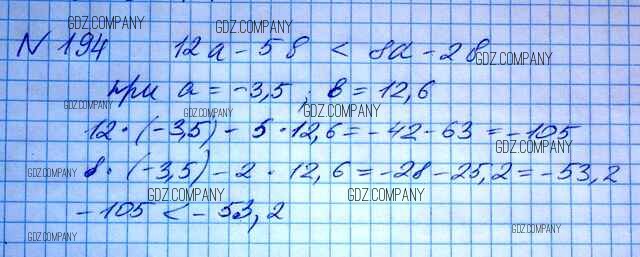 №194 12a - 5в < 8a - 2в
при a = -3,5 ; в = 12,6
12 · (-3,5) - 5 · 12,6 = -42 - 63 = -105
8 · (-3,5) - 2 · 12,6 = -28 - 25,2 = -53,2
-105 < -53,2
GDZ.COMPANY
GDZ.COMPANY
GDZ.COMPANY
GDZ.COMPANY
GDZ.COMPANY
GDZ.COMPANY
GDZ.COMPANY
GDZ.COMPANY
GDZ.COMPANY
GDZ.COMPANY
GDZ.COMPANY
GDZ.COMPANY
GDZ.COMPANY